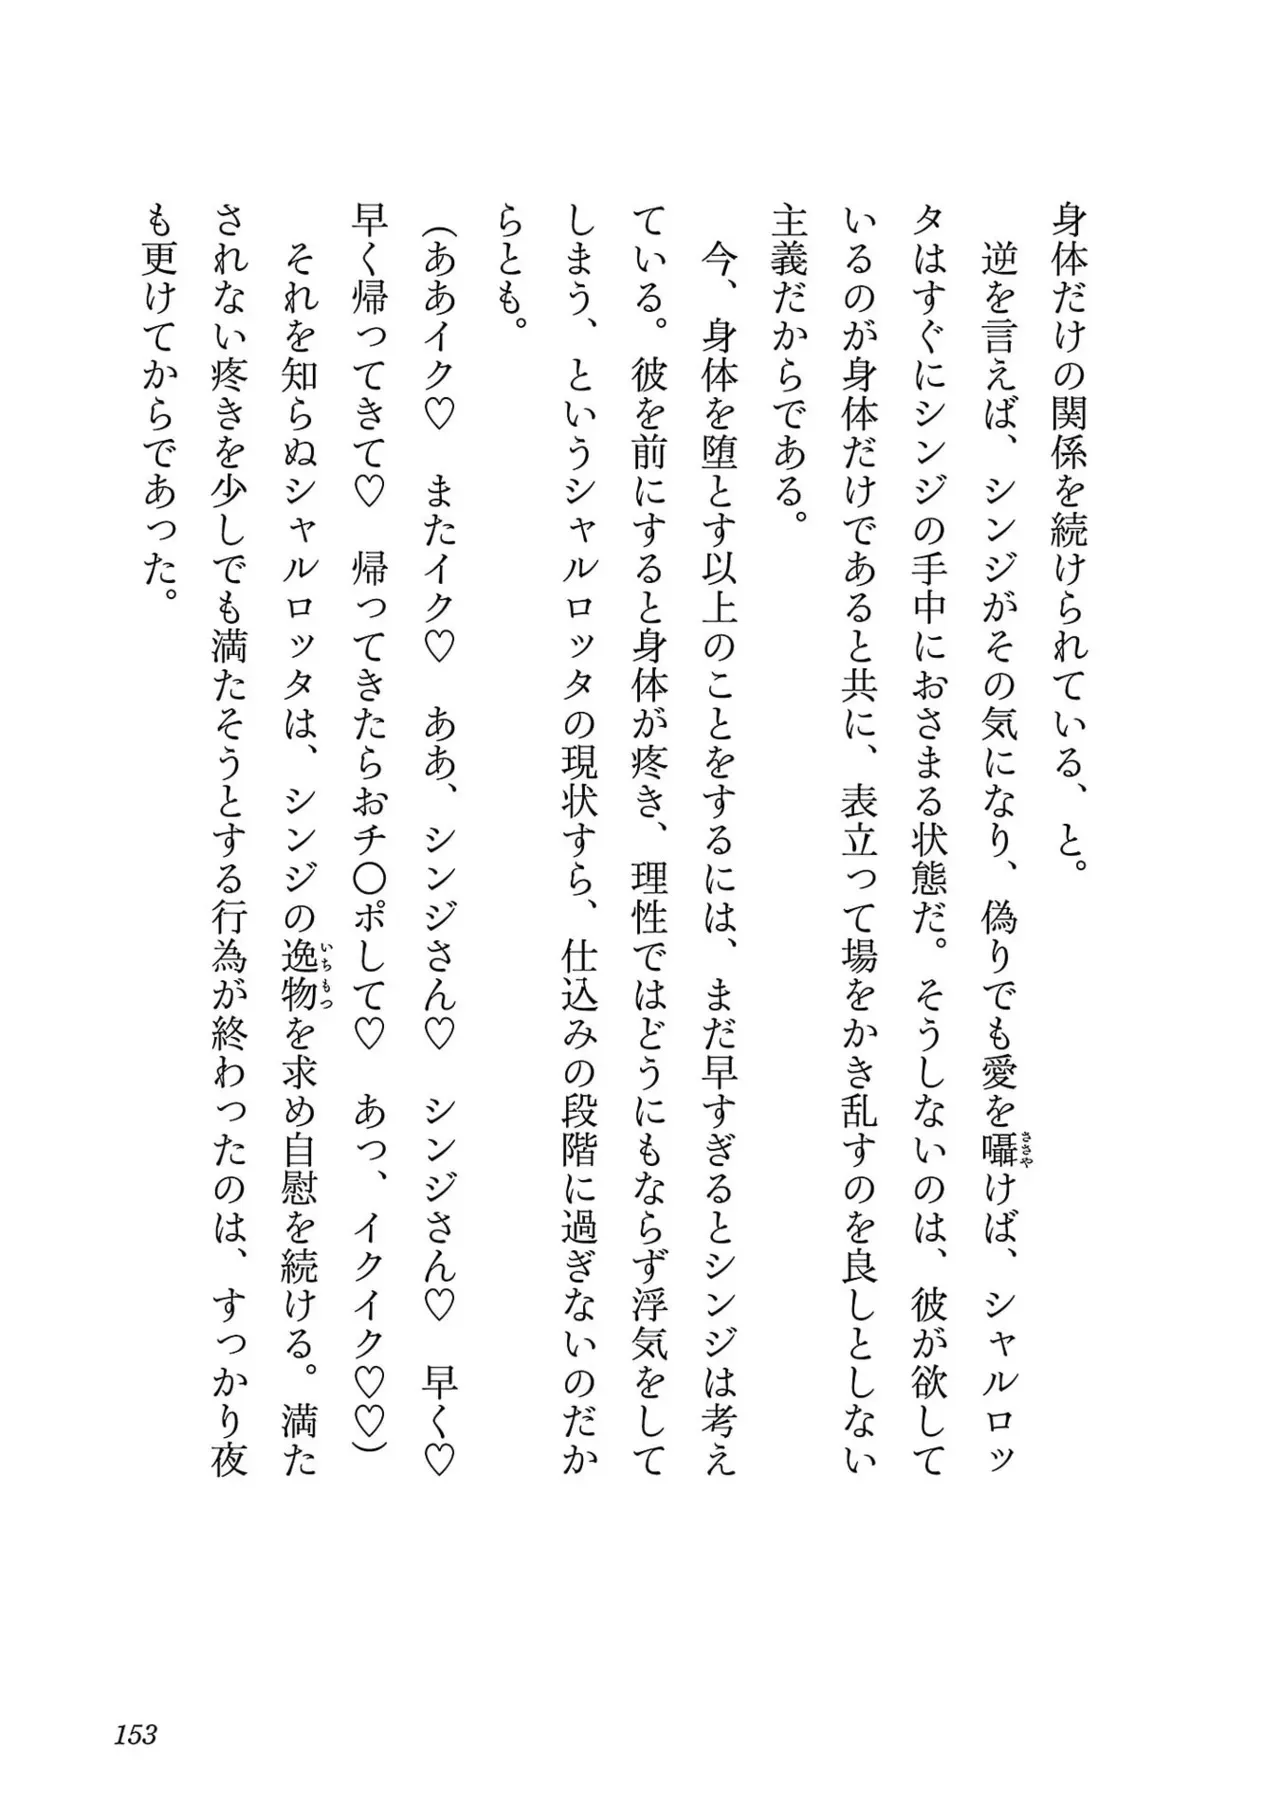 身体だけの関係を続けられている、と。
　逆を言えば、シンジがその気になり、偽りでも愛を囁けば、シャルロッ
タはすぐにシンジの手中におさまる状態だ。そうしないのは、彼が欲して
いるのが身体だけであると共に、表立って場をかき乱すのを良しとしない
主義だからである。
　今、身体を堕とす以上のことをするには、まだ早すぎるとシンジは考え
ている。彼を前にすると身体が疼き、理性ではどうにもならず浮気をして
しまう、というシャルロッタの現状すら、仕込みの段階に過ぎないのだか
らとも。
（ああイク♡　またイク♡　ああ、シンジさん♡　シンジさん♡　早く♡
早く帰ってきて♡　帰ってきたらおチ〇ポして♡　あっ、イクイク♡♡）
　それを知らぬシャルロッタは、シンジの逸物を求め自慰を続ける。満た
されない疼きを少しでも満たそうとする行為が終わったのは、すっかり夜
も更けてからであった。
ささや
いちもつ
153